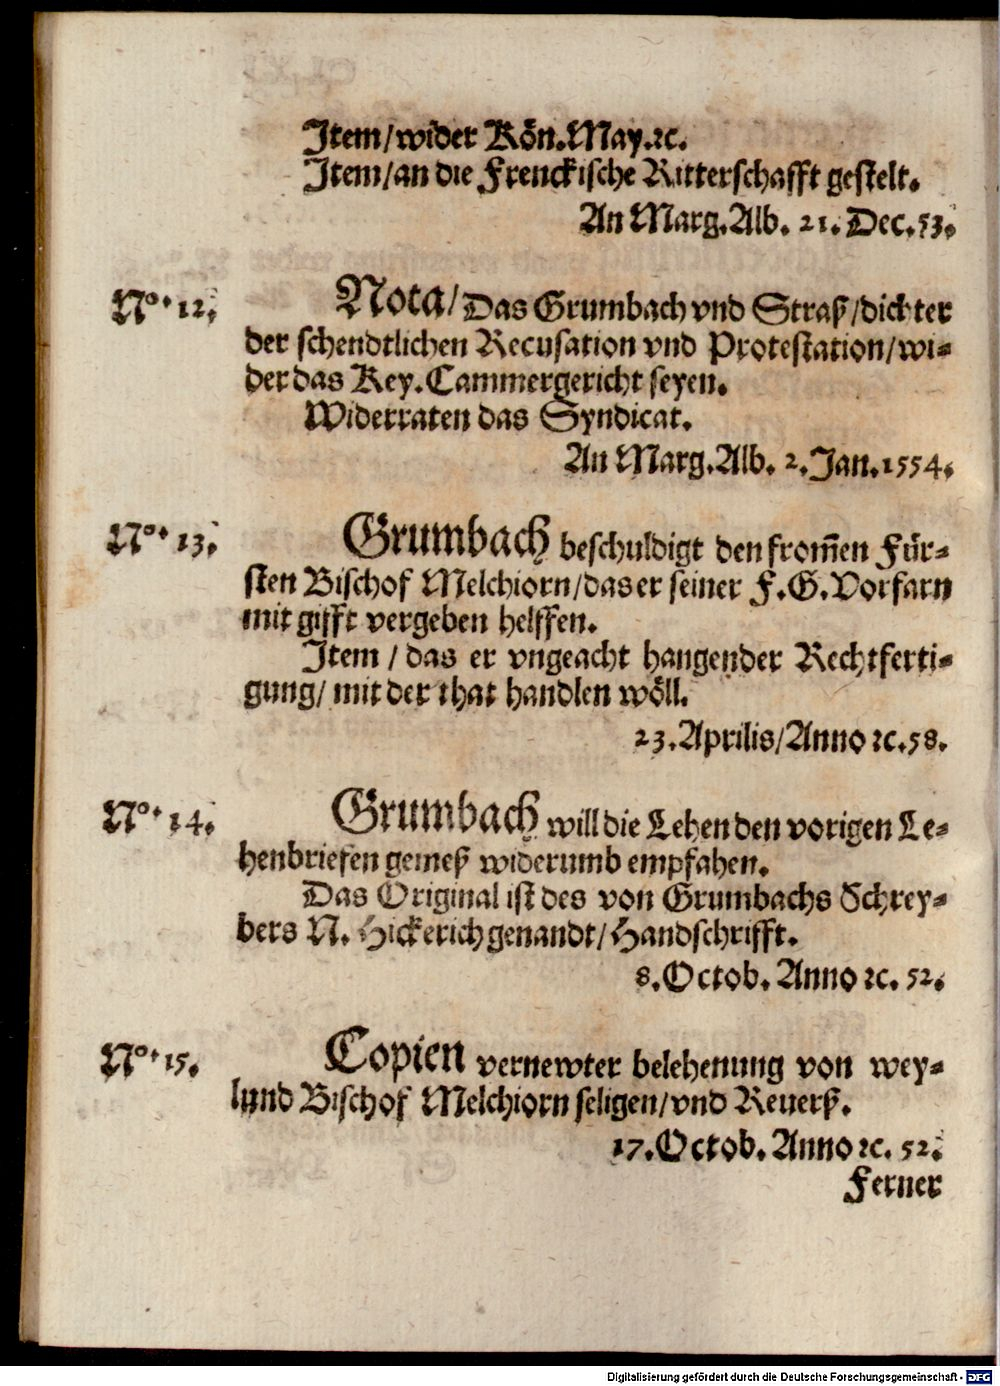 Item/wider Kön.May.ꝛc.
Item/an die Frenckische Ritterschafft gestelt.
An Marg.Alb. 21. Dec.53.
No. 12. Nota/Das Grumbach vnd Straß/dichter
der schendtlichen Recusation vnd Protestation/wi-
der das Key.Cammergericht seyen.
Widerraten das Syndicat.
An Marg.Alb. 2.Jan.1554.
No. 13. Grumbach beschuldigt den from̃en Für-
sten Bischof Melchiorn/das er seiner F.G.Vorfarn
mit gifft vergeben helffen.
Item / das er vngeacht hangender Rechtferti-
gung/ mit der that handlen wöll.
23.Aprilis/Anno ꝛc.58.
No. 14. Grumbach will die Lehen den vorigen Le-
henbriefen gemeß widerumb empfahen.
Das Original ist des von Grumbachs Schrey-
bers N. Hickerich genandt/Handschrifft.
8.Octob. Anno ꝛc. 52.
No. 15. Copien vernewter belehenung von wey-
lund Bischof Melchiorn seligen/vnd Reuerß.
17.Octob. Anno ꝛc. 52.
Ferner
Digitalisierung gefördert durch die Deutsche Forschungsgemeinschaft - DFG